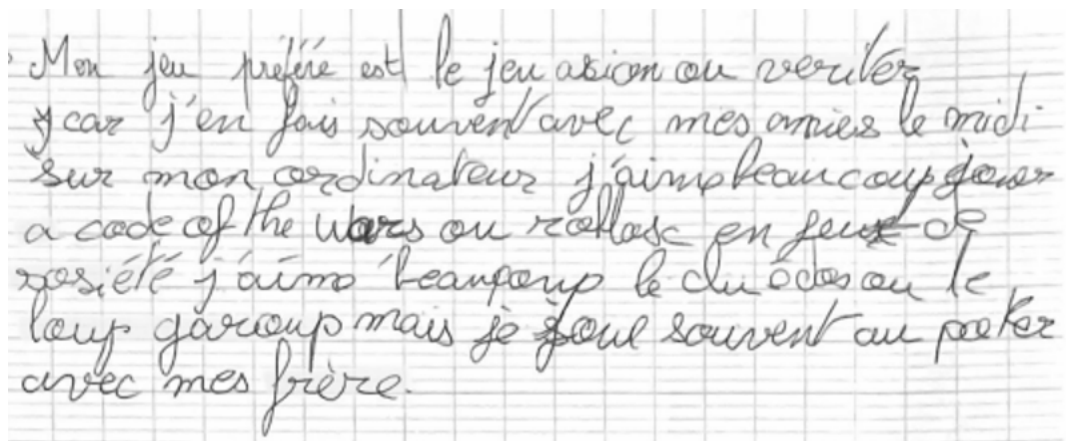 Mon jeu préféré est le jeu asion ou veriter
car j'en fais souvent avec mes amies le midi
sur mon ordinateur j'aime beaucoup jouer
a code of the wars ou roblose en jeux de
sosiété j'aime beaucoup le cluédos ou le
loup garoup mais je joue souvent au poker
avec mes frère.